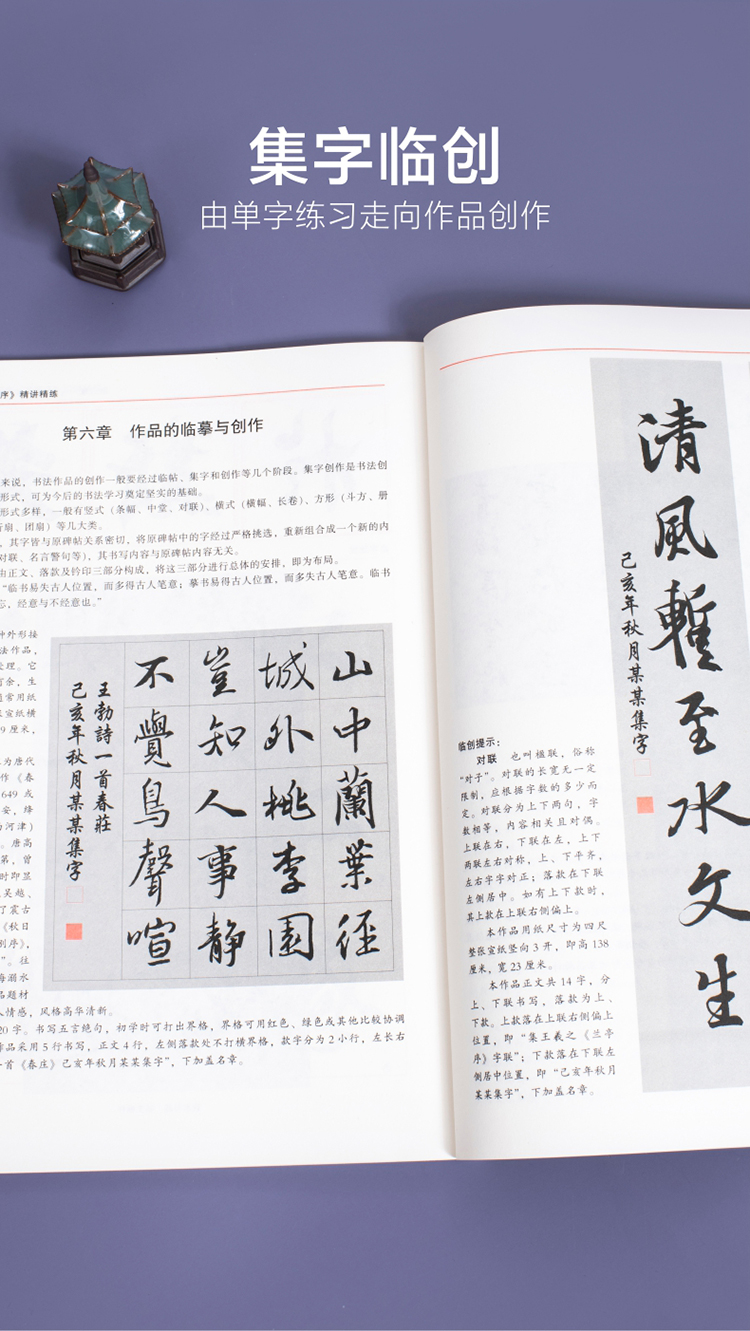 集字临创
由单字练习走向作品创作
序》精讲精练
第六章 作品的临摹与创作
来说，书法作品的创作一般要经过临帖、集字和创作等几个阶段。集字创作是书法创
形式，可为今后的书法学习奠定坚实的基础。
形式多样，一般有竖式（条幅、中堂、对联）、横式（横幅、长卷）、方形（斗方、册
扇、团扇）等几大类。
，其字皆与原碑帖关系密切，将原碑帖中的字经过严格挑选，重新组合成一个新的内
对联、名言警句等)，其书写内容与原碑帖内容无关。
由正文、落款及钤印三部分构成，将这三部分进行总体的安排，即为布局。
“临书易失古人位置，而多得古人笔意；摹书易得古人位置，而多失古人笔意。临书
忘，经意与不经意也。”
种外形接
法作品，
处理。它
有余，生
通常用纸
张宣纸横
9厘米，
为唐代
作《春
649 或
安，绛
河津）
。唐高
第，曾
时即显
吴越、
了震古
《秋日
别序》，
”。往
海溺水
品题材
人情感，风格高华清新。
20字。书写五言绝句，初学时可打出界格，界格可用红色、绿色或其他比较协调
作品采用5行书写，正文4行，左侧落款处不打横界格，款字分为2小行，左长右
一首《春庄》己亥年秋月某某集字”，下加盖名章。
山中蘭葉径
城外桃李園
豈知人事静
不覺鳥聲喧
王勃詩一首春莊
己亥年秋月某某集字
清風暫至水文生
己亥年秋月某某集字
临创提示：
对联 也叫楹联，俗称
“对子”。对联的长宽无一定
限制，应根据字数的多少而
定。对联分为上下两句，字
数相等，内容相关且对偶。
上联在右，下联在左，上下
两联左右对称，上、下平齐，
左右字字对正；落款在下联
左侧居中。如有上下款时，
其上款在上联右侧偏上。
本作品用纸尺寸为四尺
整张宣纸竖向3开，即高138
厘米，宽23厘米。
本作品正文共14字，分
上、下联书写，落款为上、
下款。上款落在上联右侧偏上
位置，即“集王羲之《兰亭
序》字联”；下款落在下联左
侧居中位置，即“己亥年秋月
某某集字”，下加盖名章。